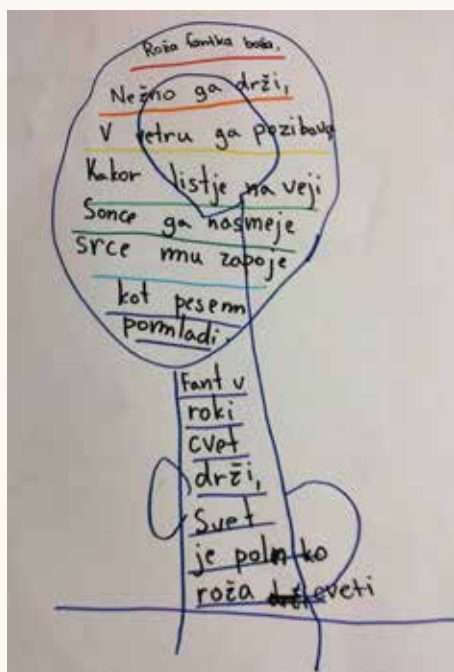 Roža fantka boža.
Nežno ga drži,
V vetru ga pozibava
Kakor listje na veji
Sonce ga nasmeje
srce mu zapoje
kot pesem
pormladi.
Fant v
roki
cvet
drži,
Svet
je poln ko
roža cveti